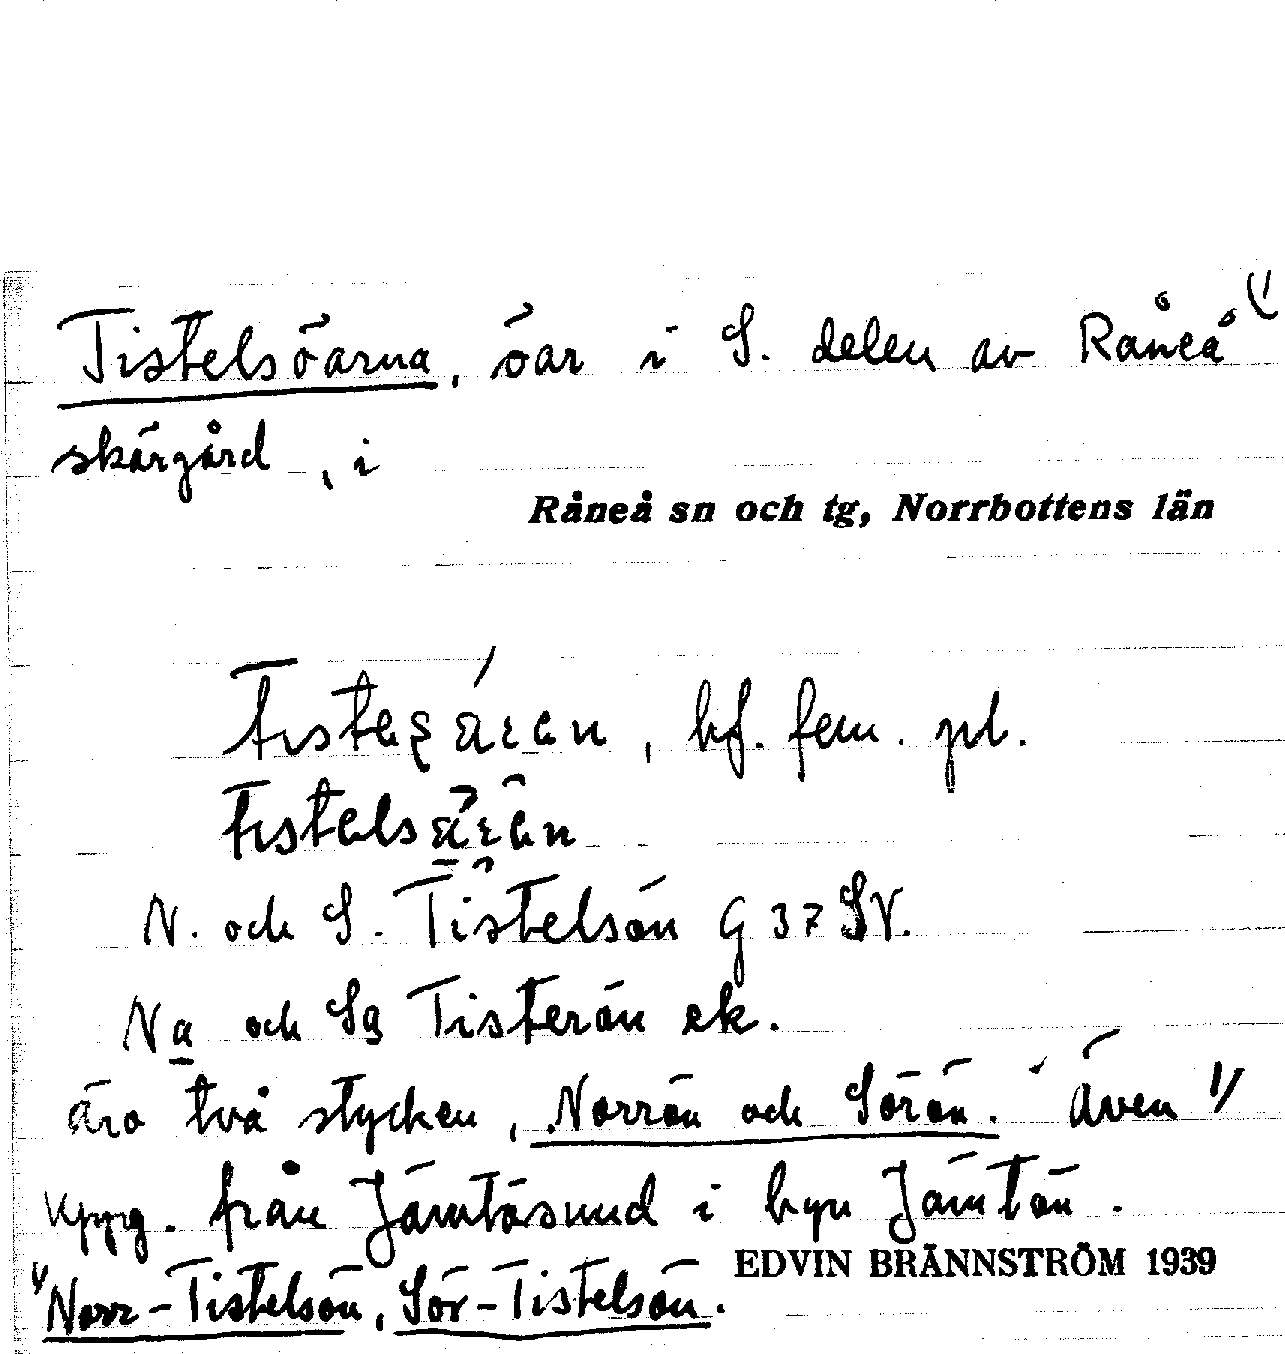 Tistelsöarna, öar i S. delen av Råneå 1/
skärgård, i
Råneå sn och tg, Norrbottens län
, bf. fem. pl.
N. och S. Tistelsön G 37 SV.
Na och Sg Tisterön ek.
äro två stycken, Norrön och Sörön. Även 1/
Uppg. från Jämtösund i byn Jämtön.
EDVIN BRÄNNSTRÖM 1939
1/ Norr-Tistelsön, Sör-Tistelsön.